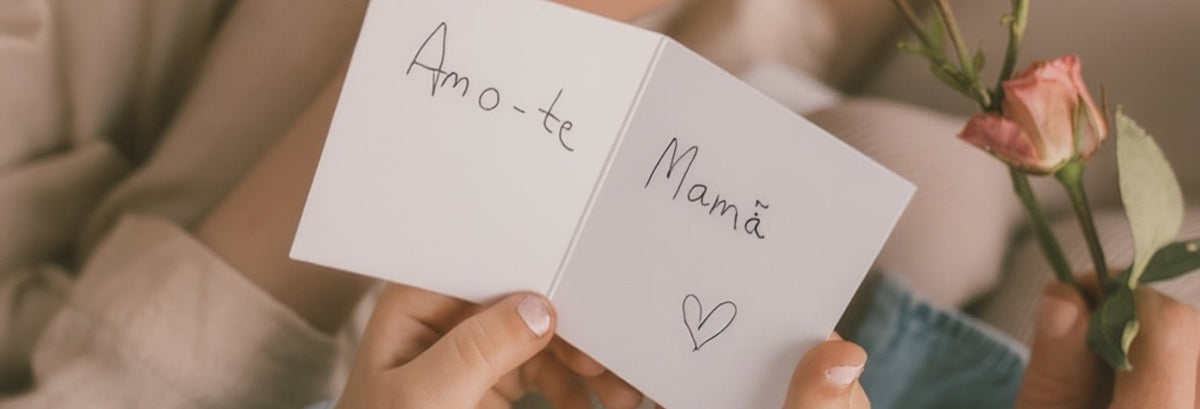 Amo-te
Mamã